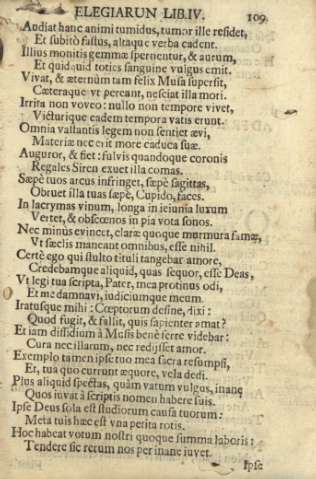 ELEGIARUN LIB.IV. 109.
Audiat hanc animi tumidus, tumor ille residet,
Et subitò fastus, altaque verba cadent.
Illius monitis gemmæ spernentur, & aurum,
Et quidquid toties sanguine vulgus emit.
Vivat, & æternùm tam felix Musa supersit,
Cæteraque vt pereant, nesciat illa mori.
Irrita non voveo: nullo non tempore vivet,
Victurique eadem tempora vatis erunt.
Omnia vastantis legem non sentiet ævi,
Materiæ nec erit more caduca suæ.
Auguror, & fiet: fulvis quandoque coronis
Regales Siren exuet illa comas.
Sæpè tuos arcus infringet, sæpè sagittas,
Obruet illa tuas sæpè, Cupido, faces.
In lacrymas vinum, longa in ieiunia luxum
Vertet, & obscœnos in pia vota sonos.
Nec minus evincet, claræ quoque murmura famæ,
Vt sæclis maneant omnibus, esse nihil.
Certè ego qui stulto tituli tangebar amore,
Credebamque aliquid, quas sequor, esse Deas,
Vt legi tua scripta, Pater, mea protinus odi,
Et me damnavi, iudiciumque meum.
Iratusque mihi: Cœptorum desine, dixi:
Quod fugit, & fallit, quis sapienter amat?
Et iam dissidium à Musis benè ferre videbar:
Cura nec illarum, nec redijsset amor.
Exemplo tamen ipse tuo mea sacra resumpsi,
Et, tua quo currunt æquore, vela dedi.
Plus aliquid spectas, quàm vatum vulgus, inane
Quos iuvat à scriptis nomen habere suis.
Ipse Deus sola est studiorum causa tuorum:
Meta tuis hæc est vna petita rotis.
Hoc habeat votum nostri quoque summa laboris:
Tendere sic rerum nos per inane iuvet.
Ipse